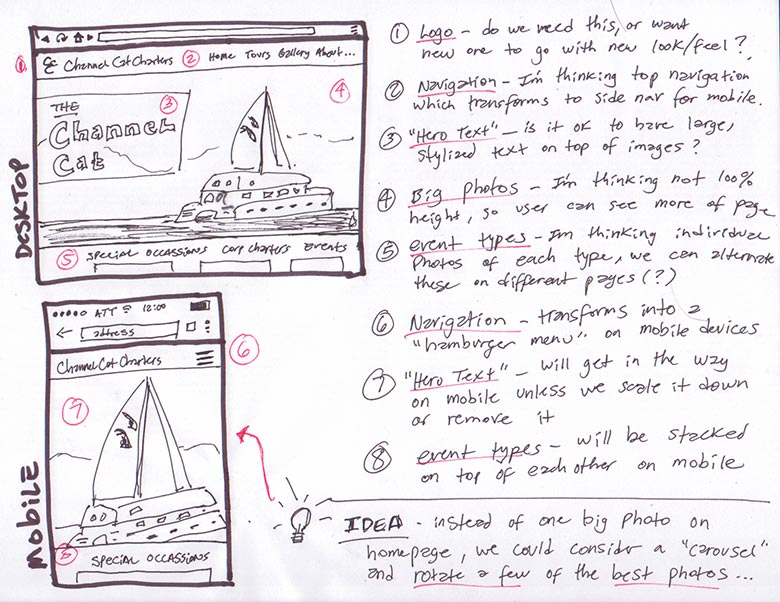 DESKTOP
1
Channel Cat Charters
2
Home Tours Gallery About...
THE
Channel
Cat
3
4
5
SPECIAL OCCASSIONS Corp Charters Events
MOBILE
ATT 12:00
address
Channel Cat Charters
6
7
8
SPECIAL OCCASSIONS
1 Logo - do we need this, or want
new one to go with new look/feel?
2 Navigation - I'm thinking top navigation
which transforms to side nav for mobile.
3 "Hero Text" - is it ok to have large,
stylized text on top of images?
4 Big photos - I'm thinking not 100%
height, so user can see more of page
5 event types - I'm thinking individual
photos of each type, we can alternate
these on different pages(?)
6 Navigation - transforms into a
"hamburger menu" on mobile devices
7 "Hero Text" - will get in the way
on mobile unless we scale it down
or remove it
8 event types - will be stacked
on top of each other on mobile
IDEA - instead of one big photo on
homepage, we could consider a "carousel"
and rotate a few of the best photos...